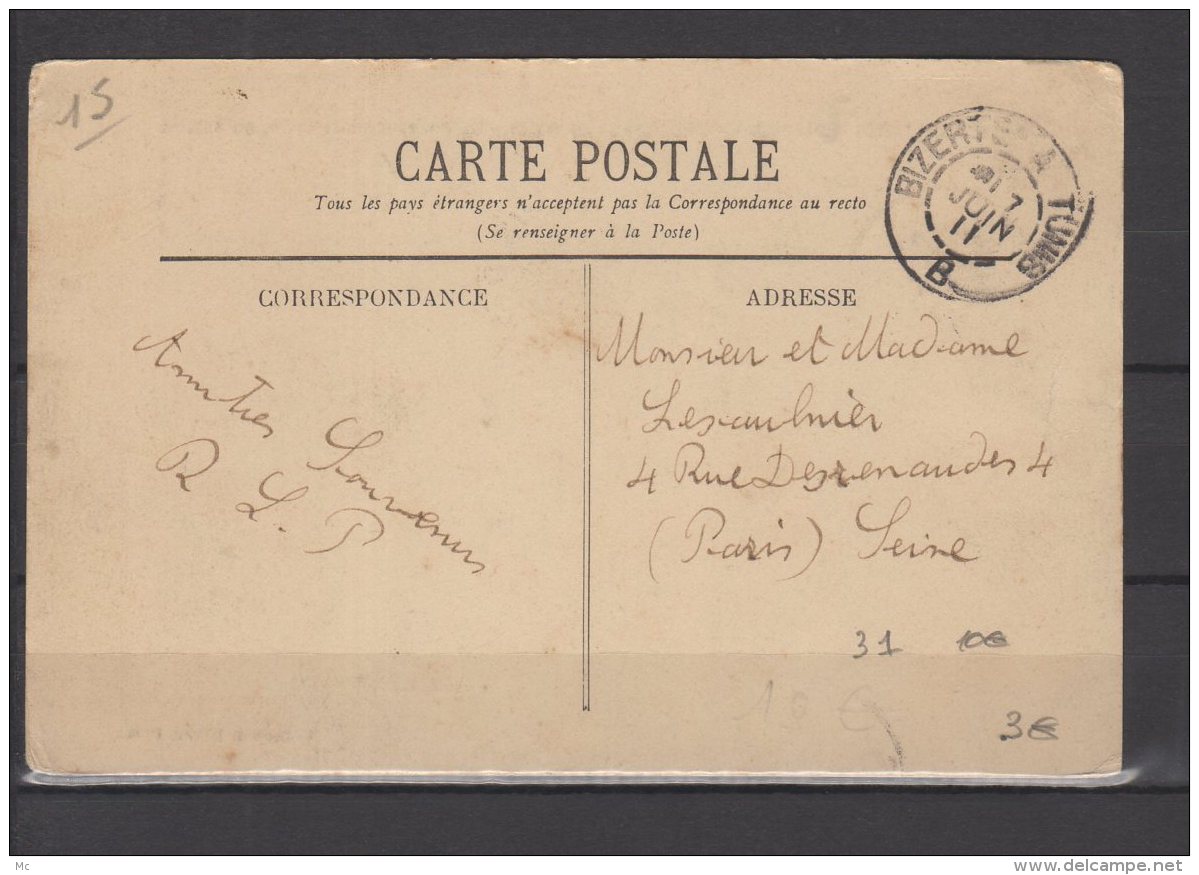 15
CARTE POSTALE
Tous les pays étrangers n'acceptent pas la Correspondance au recto
(Se renseigner à la Poste)
BIZERTE A TUNIS
7
JUIN
11
B
CORRESPONDANCE
Amitiés Souvenirs
R L. P
ADRESSE
Monsieur et Madame
Lesaulnier
4 Rue Desrenaudes 4
(Paris) Seine
31 10€
10 €
3€
Mc
www.delcampe.net